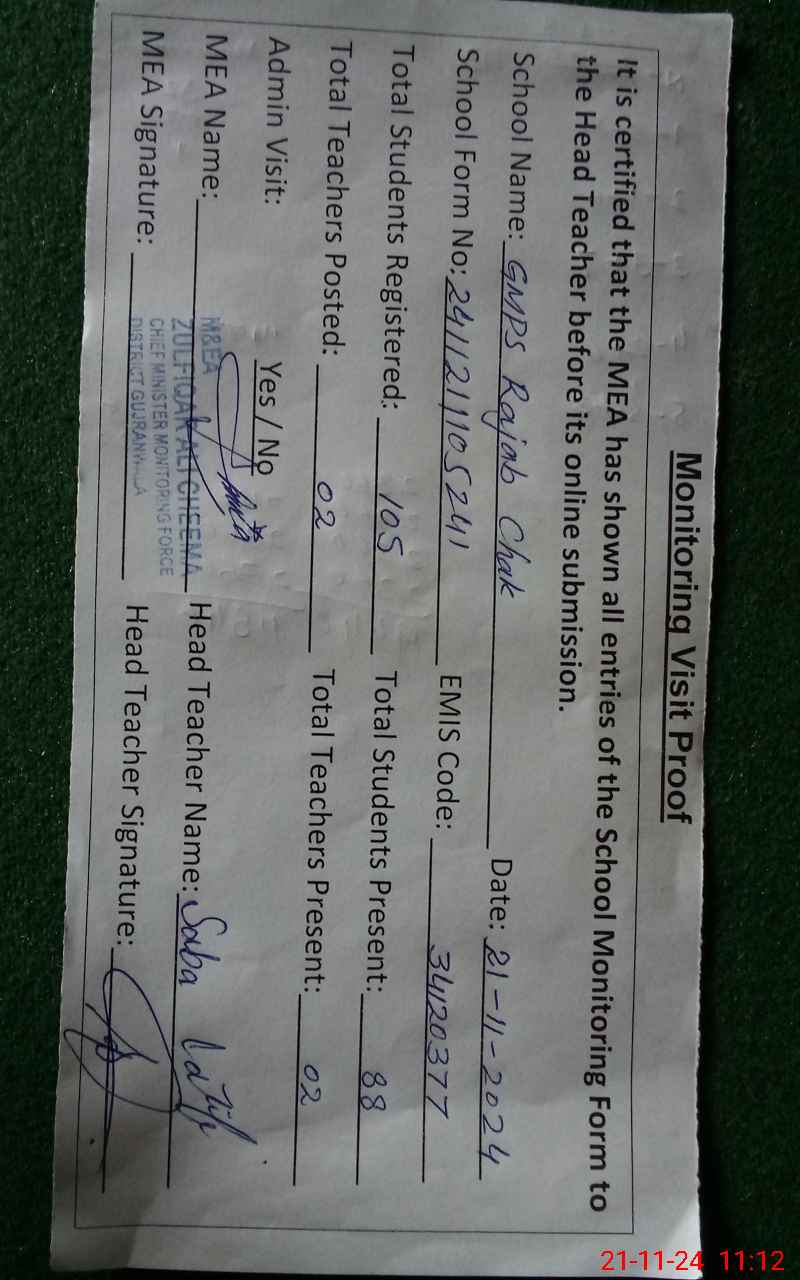 Monitoring Visit Proof
It is certified that the MEA has shown all entries of the School Monitoring Form to
the Head Teacher before its online submission.
School Name: GMPS Rajab Chak Date: 21-11-2024
School Form No: 2411211105241 EMIS Code: 34120377
Total Students Registered: 105 Total Students Present: 88
Total Teachers Posted: 02 Total Teachers Present: 02
Admin Visit: Yes / No
M&EA
MEA Name: ZULFIQAR ALI CHEEMA Head Teacher Name: Saba Latif
CHIEF MINISTER MONITORING FORCE
MEA Signature: DISTRICT GUJRANWALA Head Teacher Signature:
21-11-24 11:12